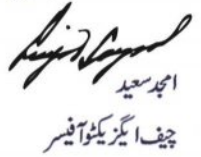 امجد سعید
چیف ایگزیکٹو آفیسر